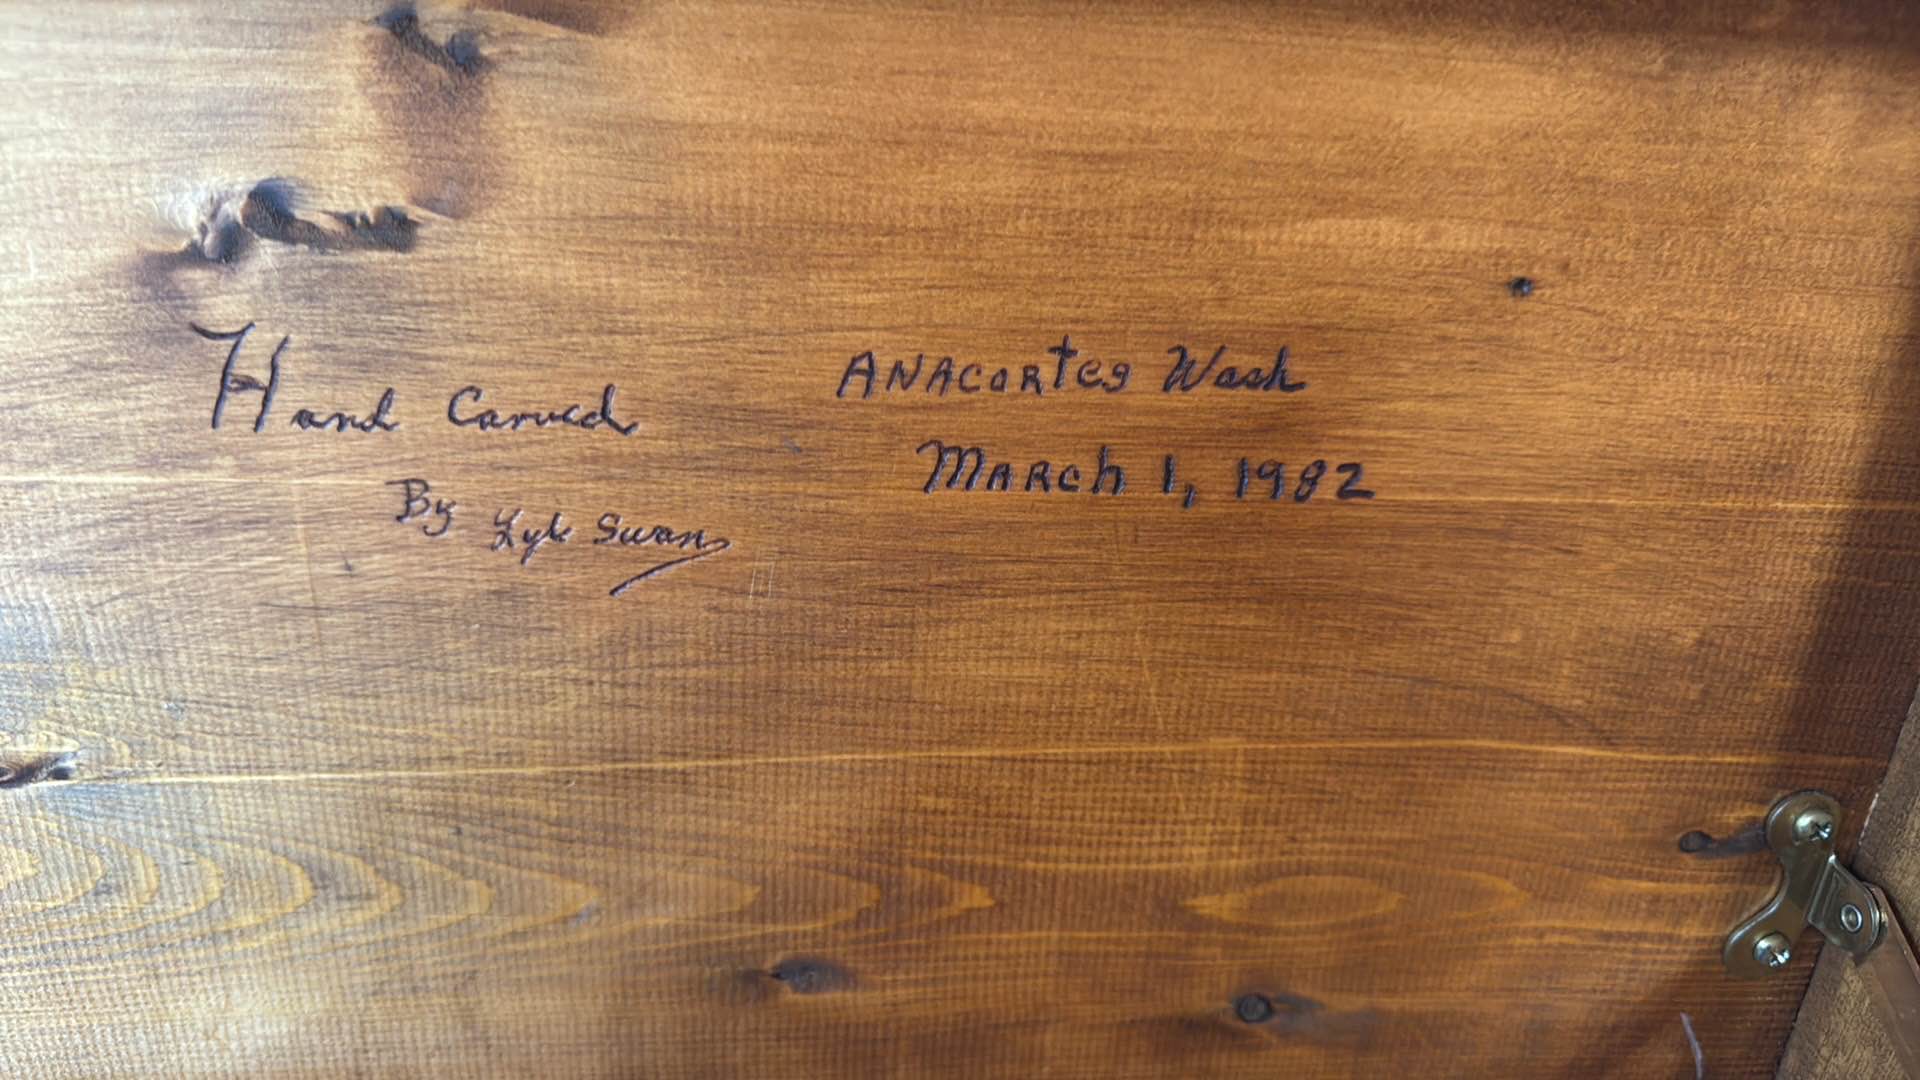 Hand Carved
By Lyle Swan
ANACORtes Wash
MARch 1, 1982